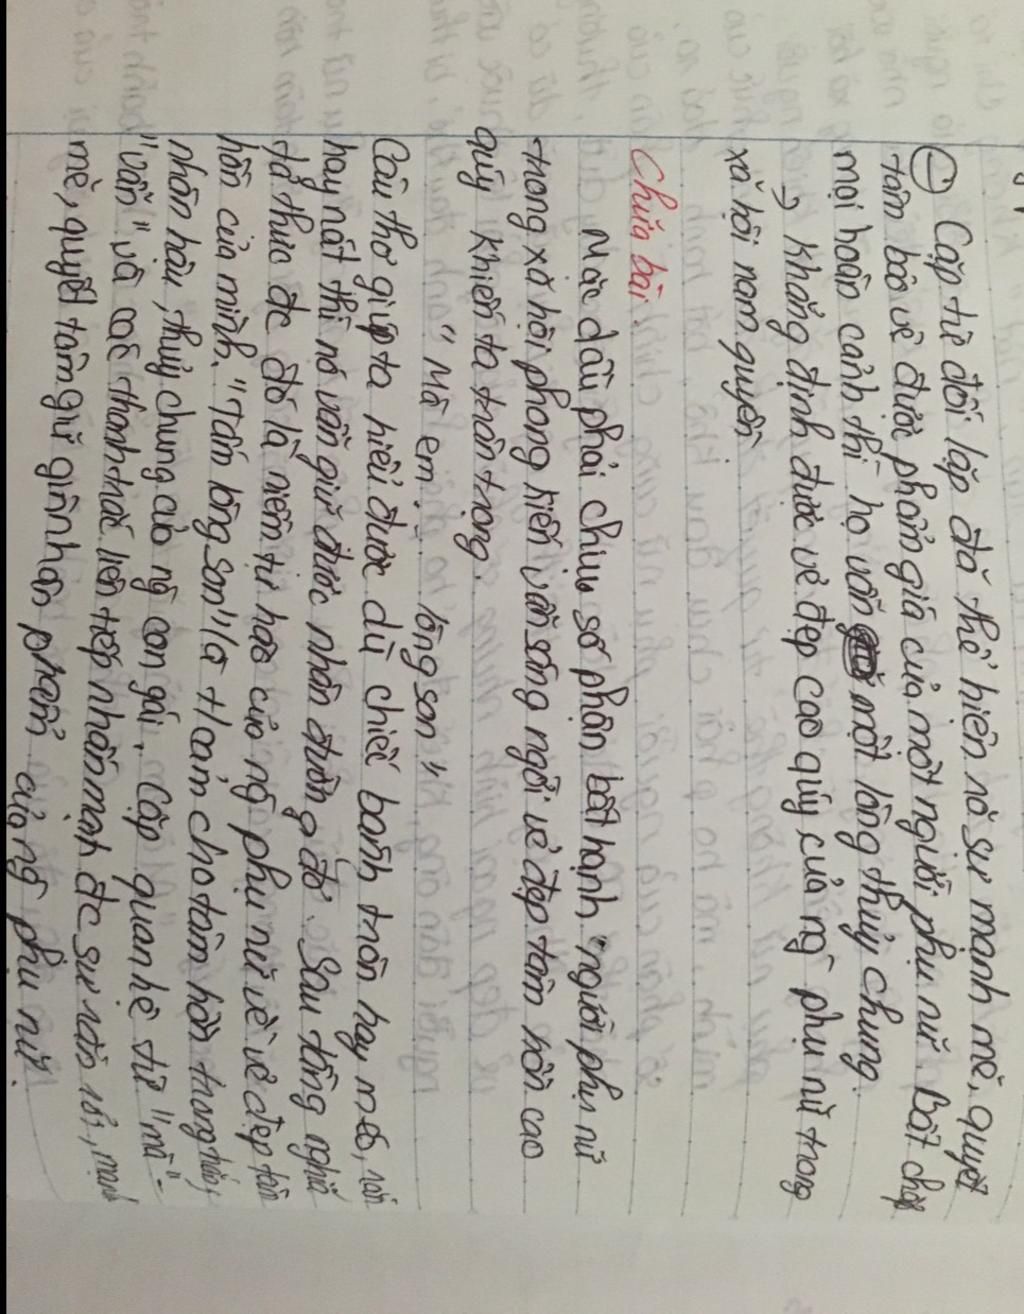 ⊖ Cặp từ đối lập đã thể hiện rõ sự mạnh mẽ, quyết
tâm bảo vệ được phẩm giá của một người phụ nữ. Bất chấp
mọi hoàn cảnh thì họ vẫn một lòng thủy chung.
→ Khẳng định được vẻ đẹp cao quý của ng phụ nữ trong
xã hội nam quyền
Chữa bài:
Mặc dầu phải chịu số phận bất hạnh, người phụ nữ
trong xã hội phong kiến vẫn sáng ngời vẻ đẹp tâm hồn cao
quý khiến ta trân trọng.
"Mà em... lòng son"
Câu thơ giúp ta hiểu được dù chiếc bánh tròn hay méo, rắn
hay nát thì nó vẫn giữ được nhân đường đỏ. Sau tầng nghĩa
tả thực đc đó là niềm tự hào của ng phụ nữ về vẻ đẹp tâm
hồn của mình. "Tấm lòng son" là hoán cho tâm hồn trong trắng,
nhân hậu, thủy chung của ng con gái. Cặp quan hệ từ "mà" -
"vẫn" và các thanh trắc liên tiếp nhấn mạnh đc sự rắn rỏi, mạnh
mẽ, quyết tâm giữ gìn nhân phẩm của ng phụ nữ.